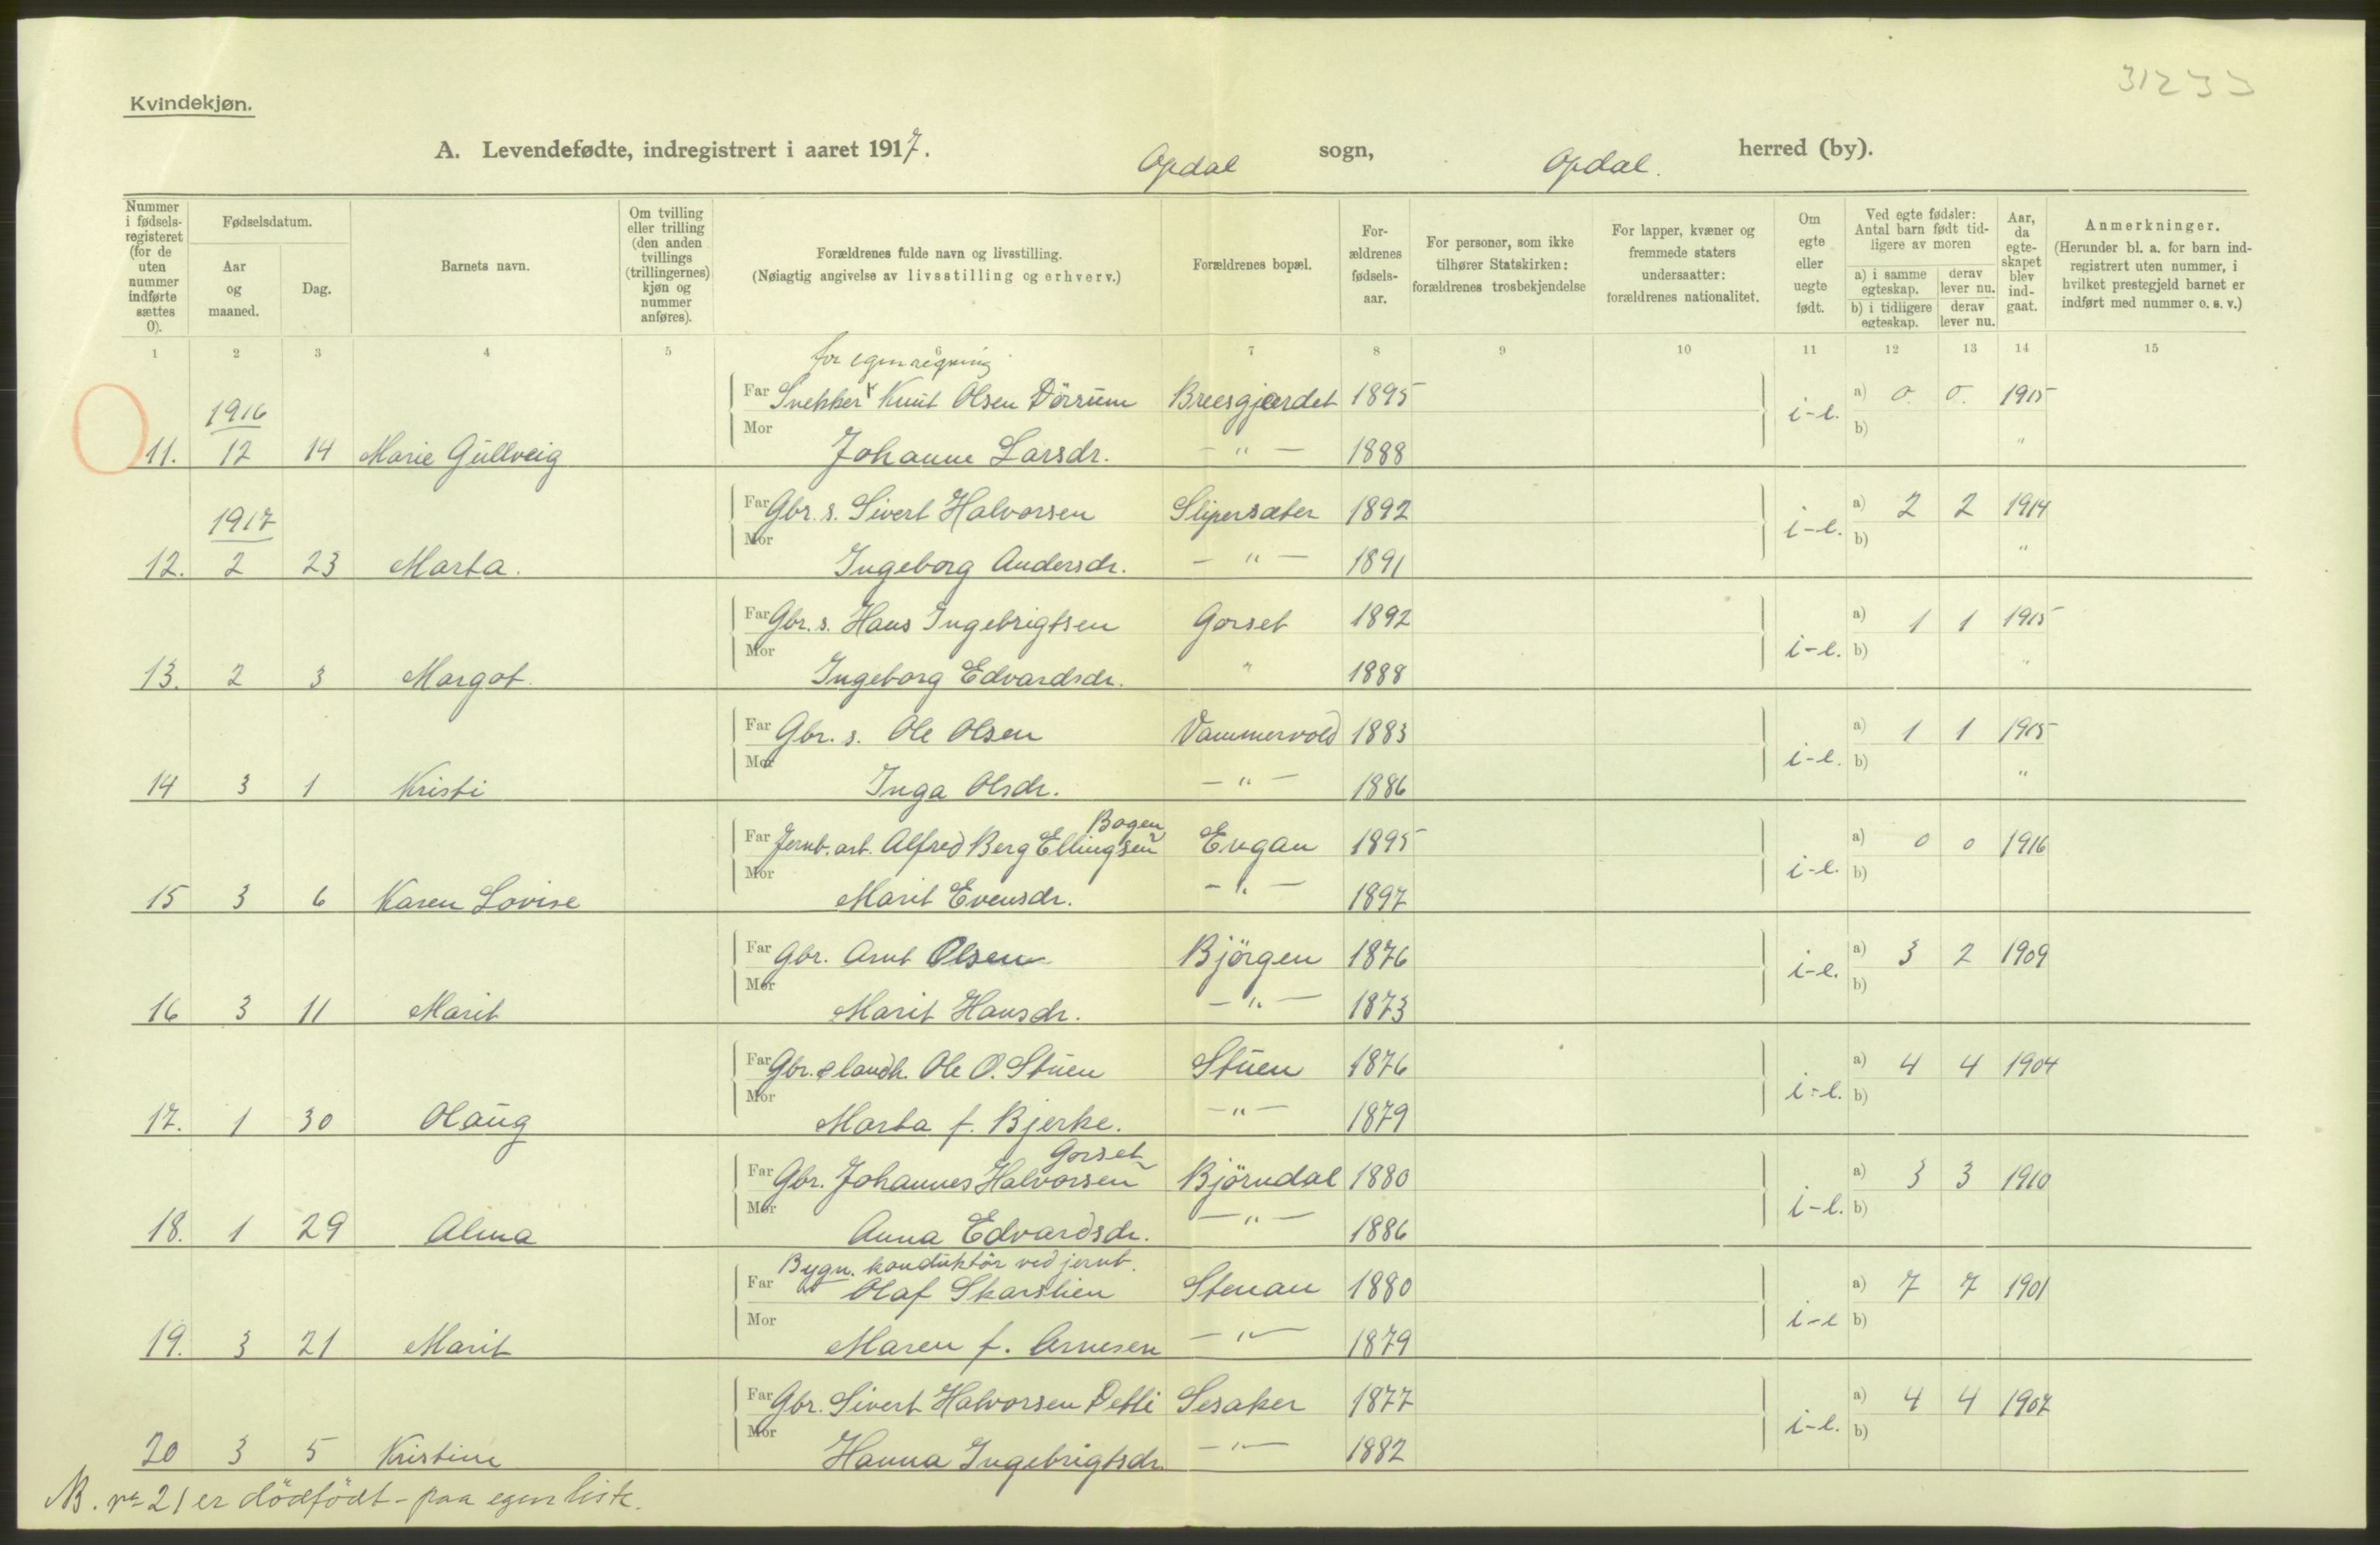 31233
Kvindekjøn.
A. Levendefødte, indregistrert i aaret 1917. Opdal sogn, Opdal. herred (by).
Nummer i fødselsregisteret (for de uten nummer indførte sættes 0).
Fødselsdatum.
Aar og maaned.
Dag.
Barnets navn.
Om tvilling eller trilling (den anden tvillings (trillingernes) kjøn og nummer anføres).
Forældrenes fulde navn og livsstilling.
(Nøiagtig angivelse av livsstilling og erhverv.)
Forældrenes bopæl.
Forældrenes fødselsaar.
For personer, som ikke tilhører Statskirken: forældrenes trosbekjendelse
For lapper, kvæner og fremmede staters undersaatter: forældrenes nationalitet.
Om egte eller uegte født.
Ved egte fødsler: Antal barn født tidligere av moren
a) i samme egteskap.
derav lever nu.
b) i tidligere egteskap.
derav lever nu.
Aar, da egteskapet blev indgaat.
Anmerkninger.
(Herunder bl. a. for barn indregistrert uten nummer, i hvilket prestegjeld barnet er indført med nummer o. s. v.)
1 2 3 4 5 6 7 8 9 10 11 12 13 14 15
for egen regning
Far Snekker Knut Olsen Dörrum Breesgjærdet 1895 a) 0. 0. 1915
1916
Mor i-e. b)
11. 12 14 Marie Gullveig Johanne Larsdr. - " - 1888 "
Far Gbr. s. Sivert Halvorsen Slipersæter 1892 a) 2 2 1914
1917
Mor i-e. b)
12. 2 23 Marta. Ingeborg Andersdr. - " - 1891 "
Far Gbr. s. Hans Ingebrigtsen Gorset 1892 a) 1 1 1915
Mor i-e. b)
13. 2 3 Margot. Ingeborg Edvardsdr. " 1888 "
Far Gbr. s. Ole Olsen Vammervold 1883 a) 1 1 1915
Mor i-e. b)
14 3 1 Kristi Inga Olsdr. - " - 1886 "
Bogen
Far Jernb. arb. Alfred Berg Ellingsen Engan 1895 a) 0 0 1916
Mor i-e. b)
15 3 6 Karen Lovise Marit Evensdr. - " - 1897
Far Gbr. Arnt Olsen Björgen 1876 a) 3 2 1909
Mor i-e. b)
16 3 11 Marit Marit Hansdr. - " - 1873
Far Gbr. & landh. Ole O. Stuen Stuen 1876 a) 4 4 1904
Mor i-e. b)
17. 1 30 Olaug Marta f. Bjerke. - " - 1879
Gorset
Far Gbr. Johannes Halvorsen Björndal 1880 a) 3 3 1910
Mor i-e. b)
18. 1 29 Alma Anna Edvardsdr. - " - 1886
Bygn. konduktör ved jernb.
Far Olaf Skarslien Stenan 1880 a) 7 7 1901
Mor i-e b)
19. 3 21 Marit Maren f. Arnesen - " - 1879
Far Gbr. Sivert Halvorsen Detli Sesaker 1877 a) 4 4 1907
Mor i-e. b)
20 3 5 Kristine Hanna Ingebrigtsdr. - " - 1882
NB. nr 21 er dödfödt - paa egen liste.